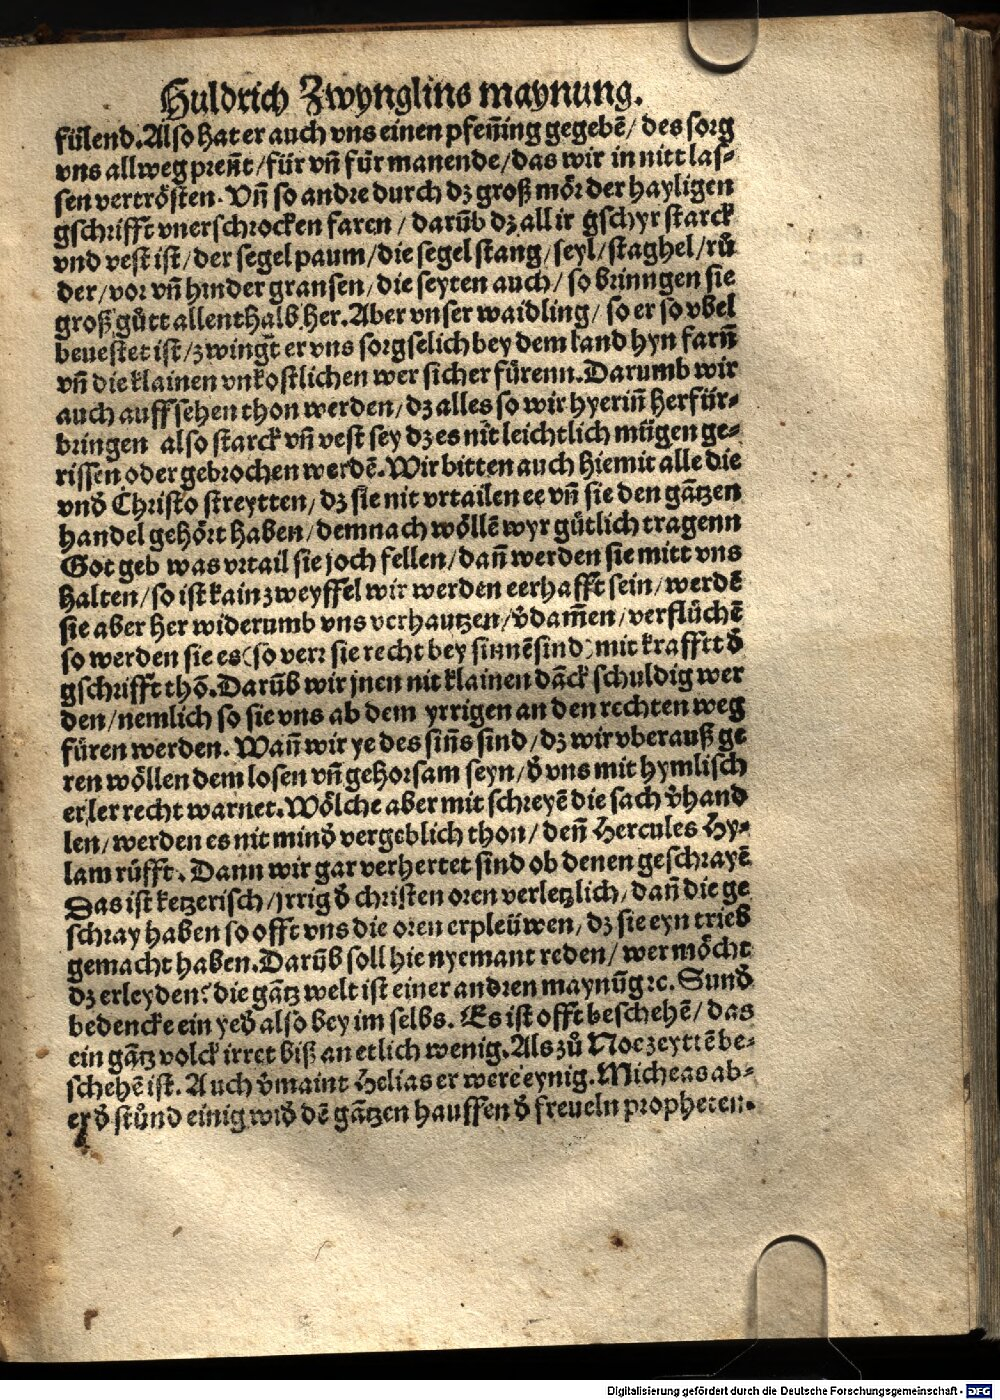 Huldrich Zwynglins maynung.
fülend. Also hat er auch vns einen pfeñing gegebē/ des sorg
vns allweg preñt/für vñ für manende/das wir in nitt las⸗
sen vertrösten. Vñ so andre durch dz groß mör der hayligen
gschrifft vnerschrocken faren/ darūb dz all ir gschyr starck
vnd vest ist/der segel paum/die segel stang/seyl/staghel/rů
der/vor vñ hinder gransen/die seyten auch/ so brinngen sie
groß gütt allenthalb her. Aber vnser waidling/ so er so vbel
beuestet ist/zwingt er vns sorgselich bey dem land hyn farñ
vñ die klainen vnkostlichen wer sicher fürenn. Darumb wir
auch auffsehen thon werden/dz alles so wir hyeriñ herfür⸗
bringen also starck vñ vest sey dz es nit leichtlich mügen ge⸗
rissen oder gebrochen werdē. Wir bitten auch hiemit alle die
vnd̄ Christo streytten/ dz sie nit vrtailen ee vñ sie den gātzen
handel gehört haben/demnach wöllē wyr gütlich tragenn
Got geb was vrtail sie joch fellen/dañ werden sie mitt vns
halten/so ist kain zweyffel wir werden eerhafft sein/werdē
sie aber her widerumb vns verhautzen/v̄dam̄en/verflüchē
so werden sie es (so verr sie recht bey sinnē sind) mit krafftt d̄
gschrifft thō. Darūb wir jnen nit klainen dāck schuldig wer
den/nemlich so sie vns ab dem yrrigen an den rechten weg
füren werden. Wañ wir ye des siñs sind/dz wir vberauß ge
ren wöllen dem losen vñ gehorsam seyn/d̄ vns mit hymlisch
er ler recht warnet. Wölche aber mit schreyē die sach v̄hand
len/werden es nit mind̄ vergeblich thon/deñ Hercules Hy⸗
lam rüfft. Dann wir gar verhertet sind ob denen geschrayē
Das ist ketzerisch/jrrig d̄ christen oren verletzlich/dañ die ge
schray haben so offt vns die oren erpleüwen/dz sie eyn trieb
gemacht haben. Darūb soll hie nyemant reden/ wer möcht
dz erleyden? die gātz welt ist einer andren maynūg ꝛc. Sund̄
bedencke ein yed̄ also bey im selbs. Es ist offt beschehē/ das
ein gātz volck irret biß an etlich wenig. Als zů Noe zeyttē be⸗
schehē ist. Auch v̄maint Helias er were eynig. Micheas ab⸗
er d̄ stůnd einig wid̄ dē gātzen hauffen d̄ freueln propheten.
Digitalisierung gefördert durch die Deutsche Forschungsgemeinschaft - DFG